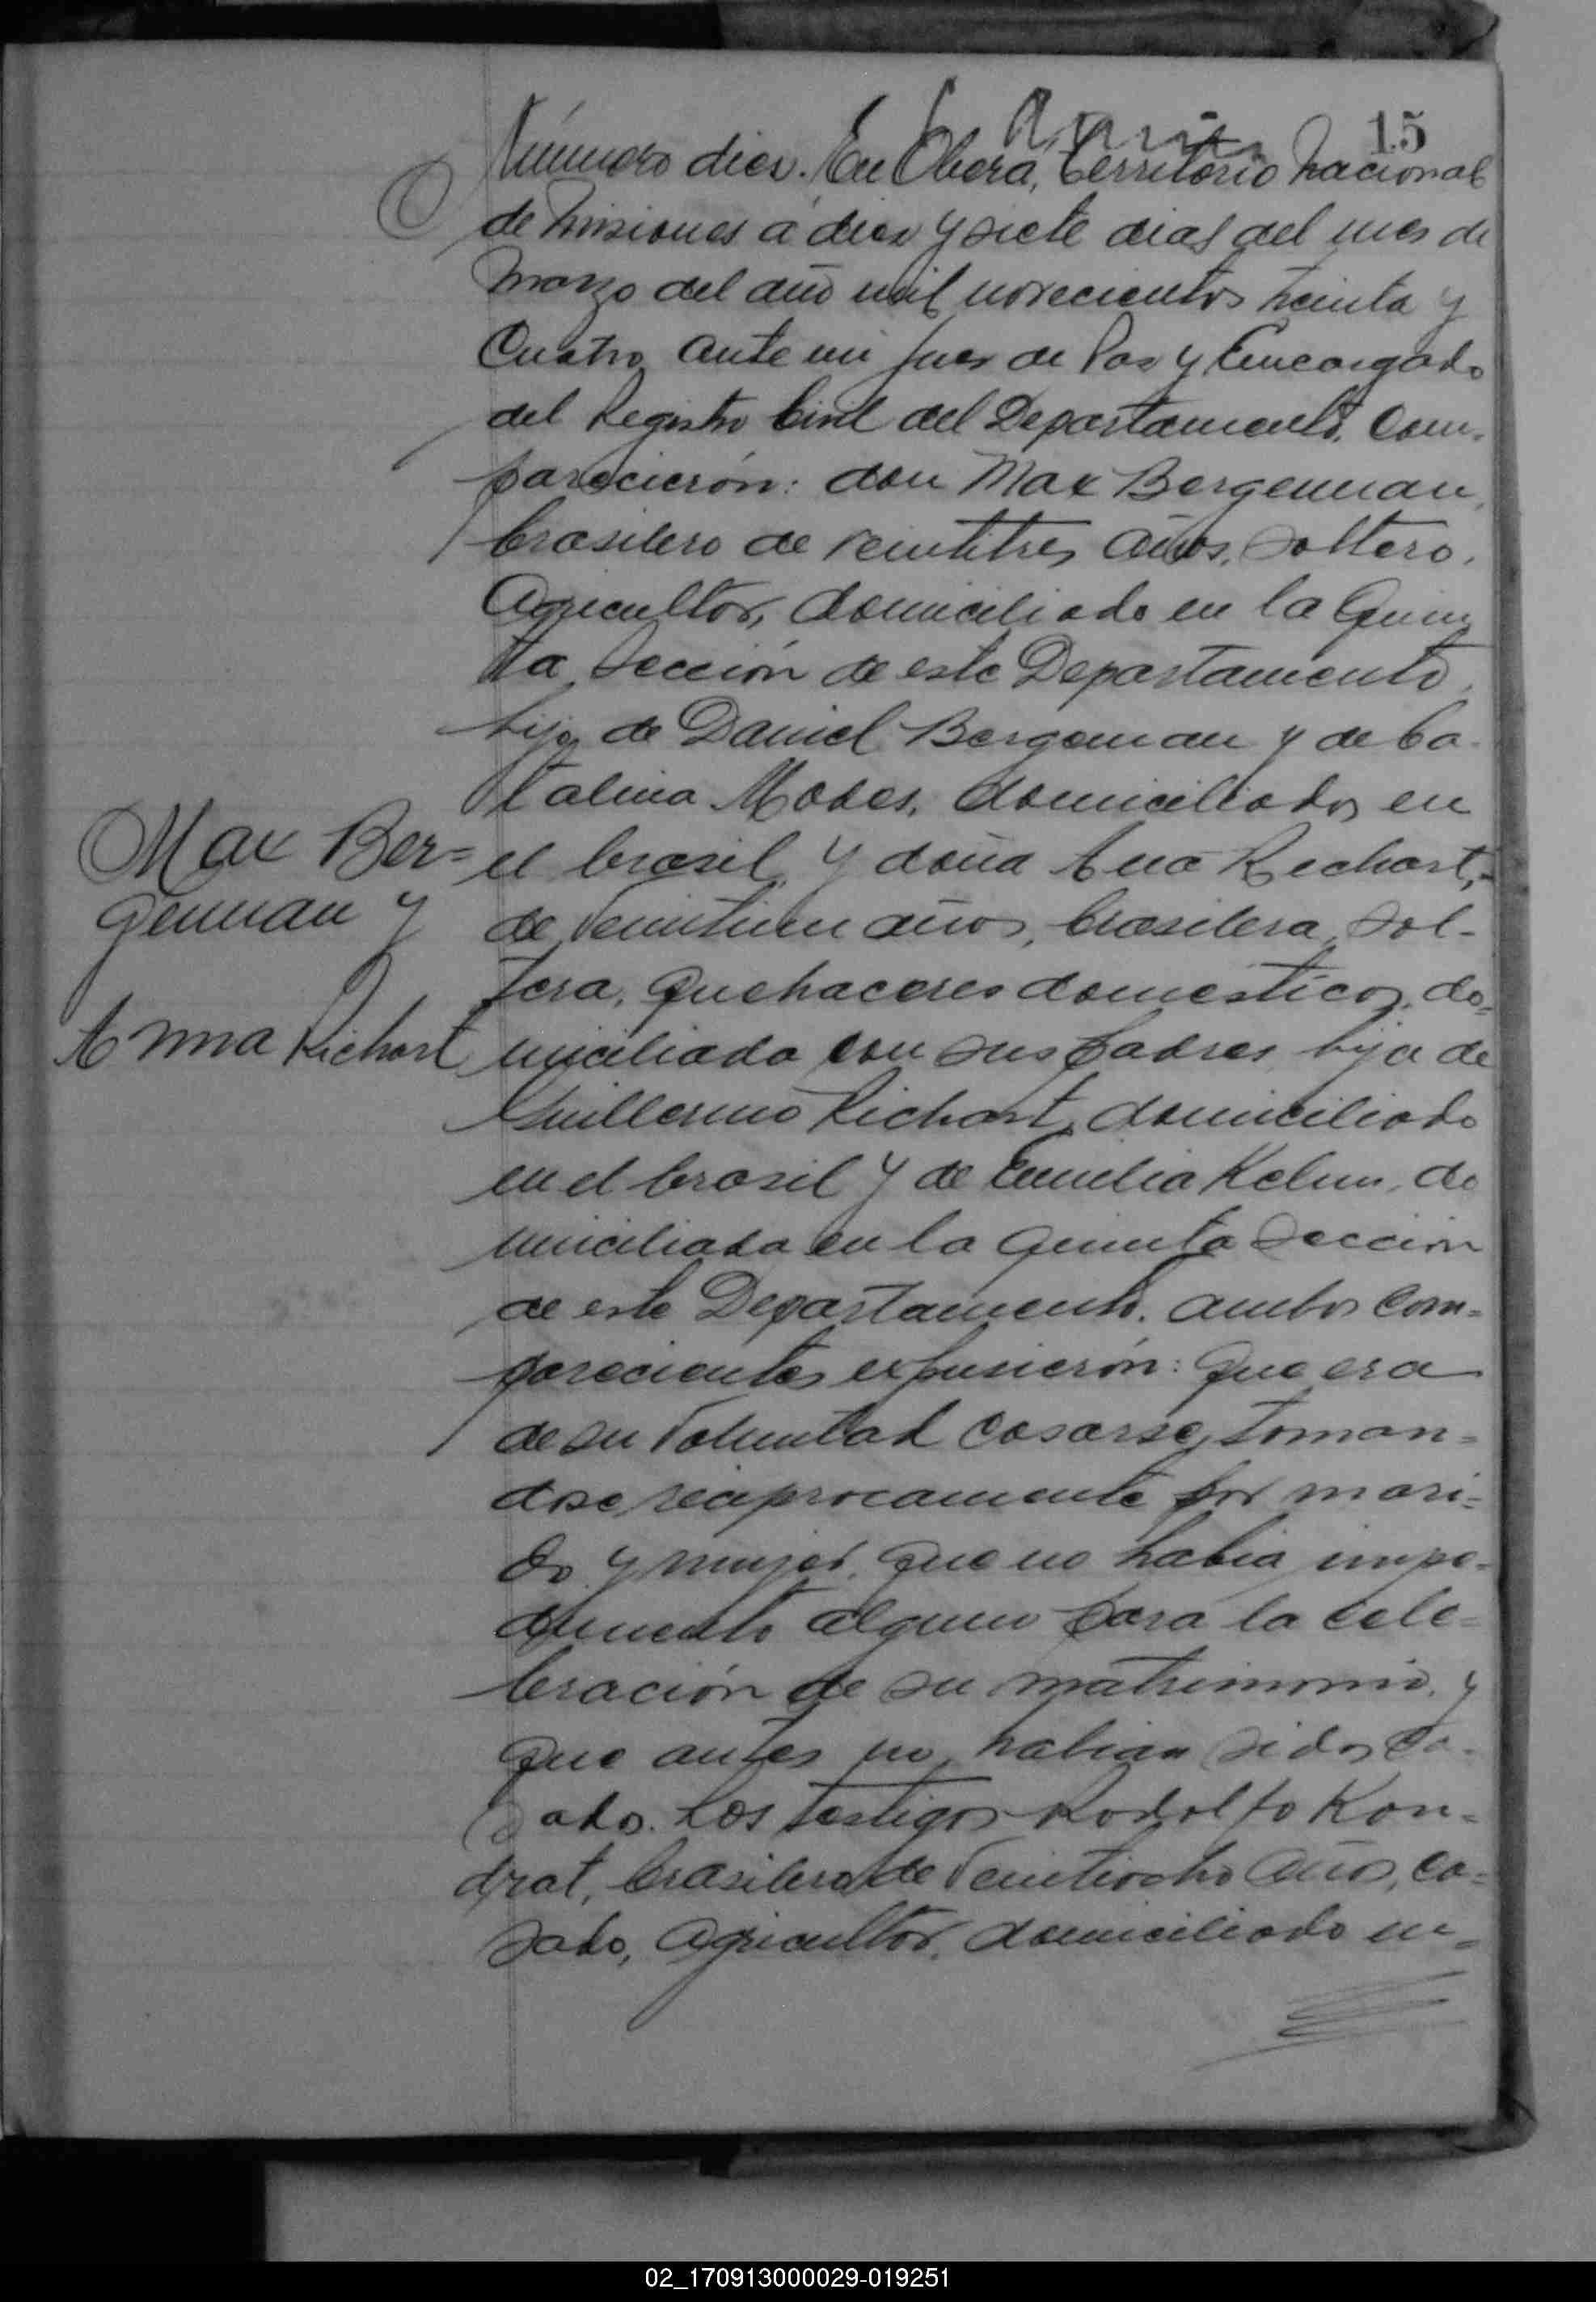 15
Número diez. En Oberá, Territorio Nacional
de Misiones a diez y siete dias del mes de
Marzo del año mil novecientos treinta y
Cuatro, ante mi Juez de Paz y Encargado
del Registro Civil del Departamento, Com-
parecierón: don Max Bergenman,
brasilero de veintitres años, Soltero,
Agricultor, domiciliado en la Quin
ta Sección de este Departamento,
hijo de Daniel Bergeman y de Ca-
talina Modes, domiciliados en
el brasil, y doña Ana Rechart,
de veintiun años, brasilera, Sol-
tera, Quehaceres domesticos, do-
miciliada con sus padres, hija de
Guillermo Richart, domiciliado
en el brasil y de Emilia Kelm, do
miciliada en la Quinta Sección
de este Departamento. ambos Com-
parecientes expusierón: Que era
de su Voluntad Casarse, toman-
dose reciprocamente por mari-
do y mujer, que no habia impe-
dimento alguno para la cele-
bración de su matrimonio, y
que antes no habian sidos Ca-
sados. Los testigos Rodolfo Kon-
drat, brasilero de Veintiocho años, ca-
sado, Agricultor, domiciliado en
Max Ber-
genman y
Anna Richart
02_170913000029-019251